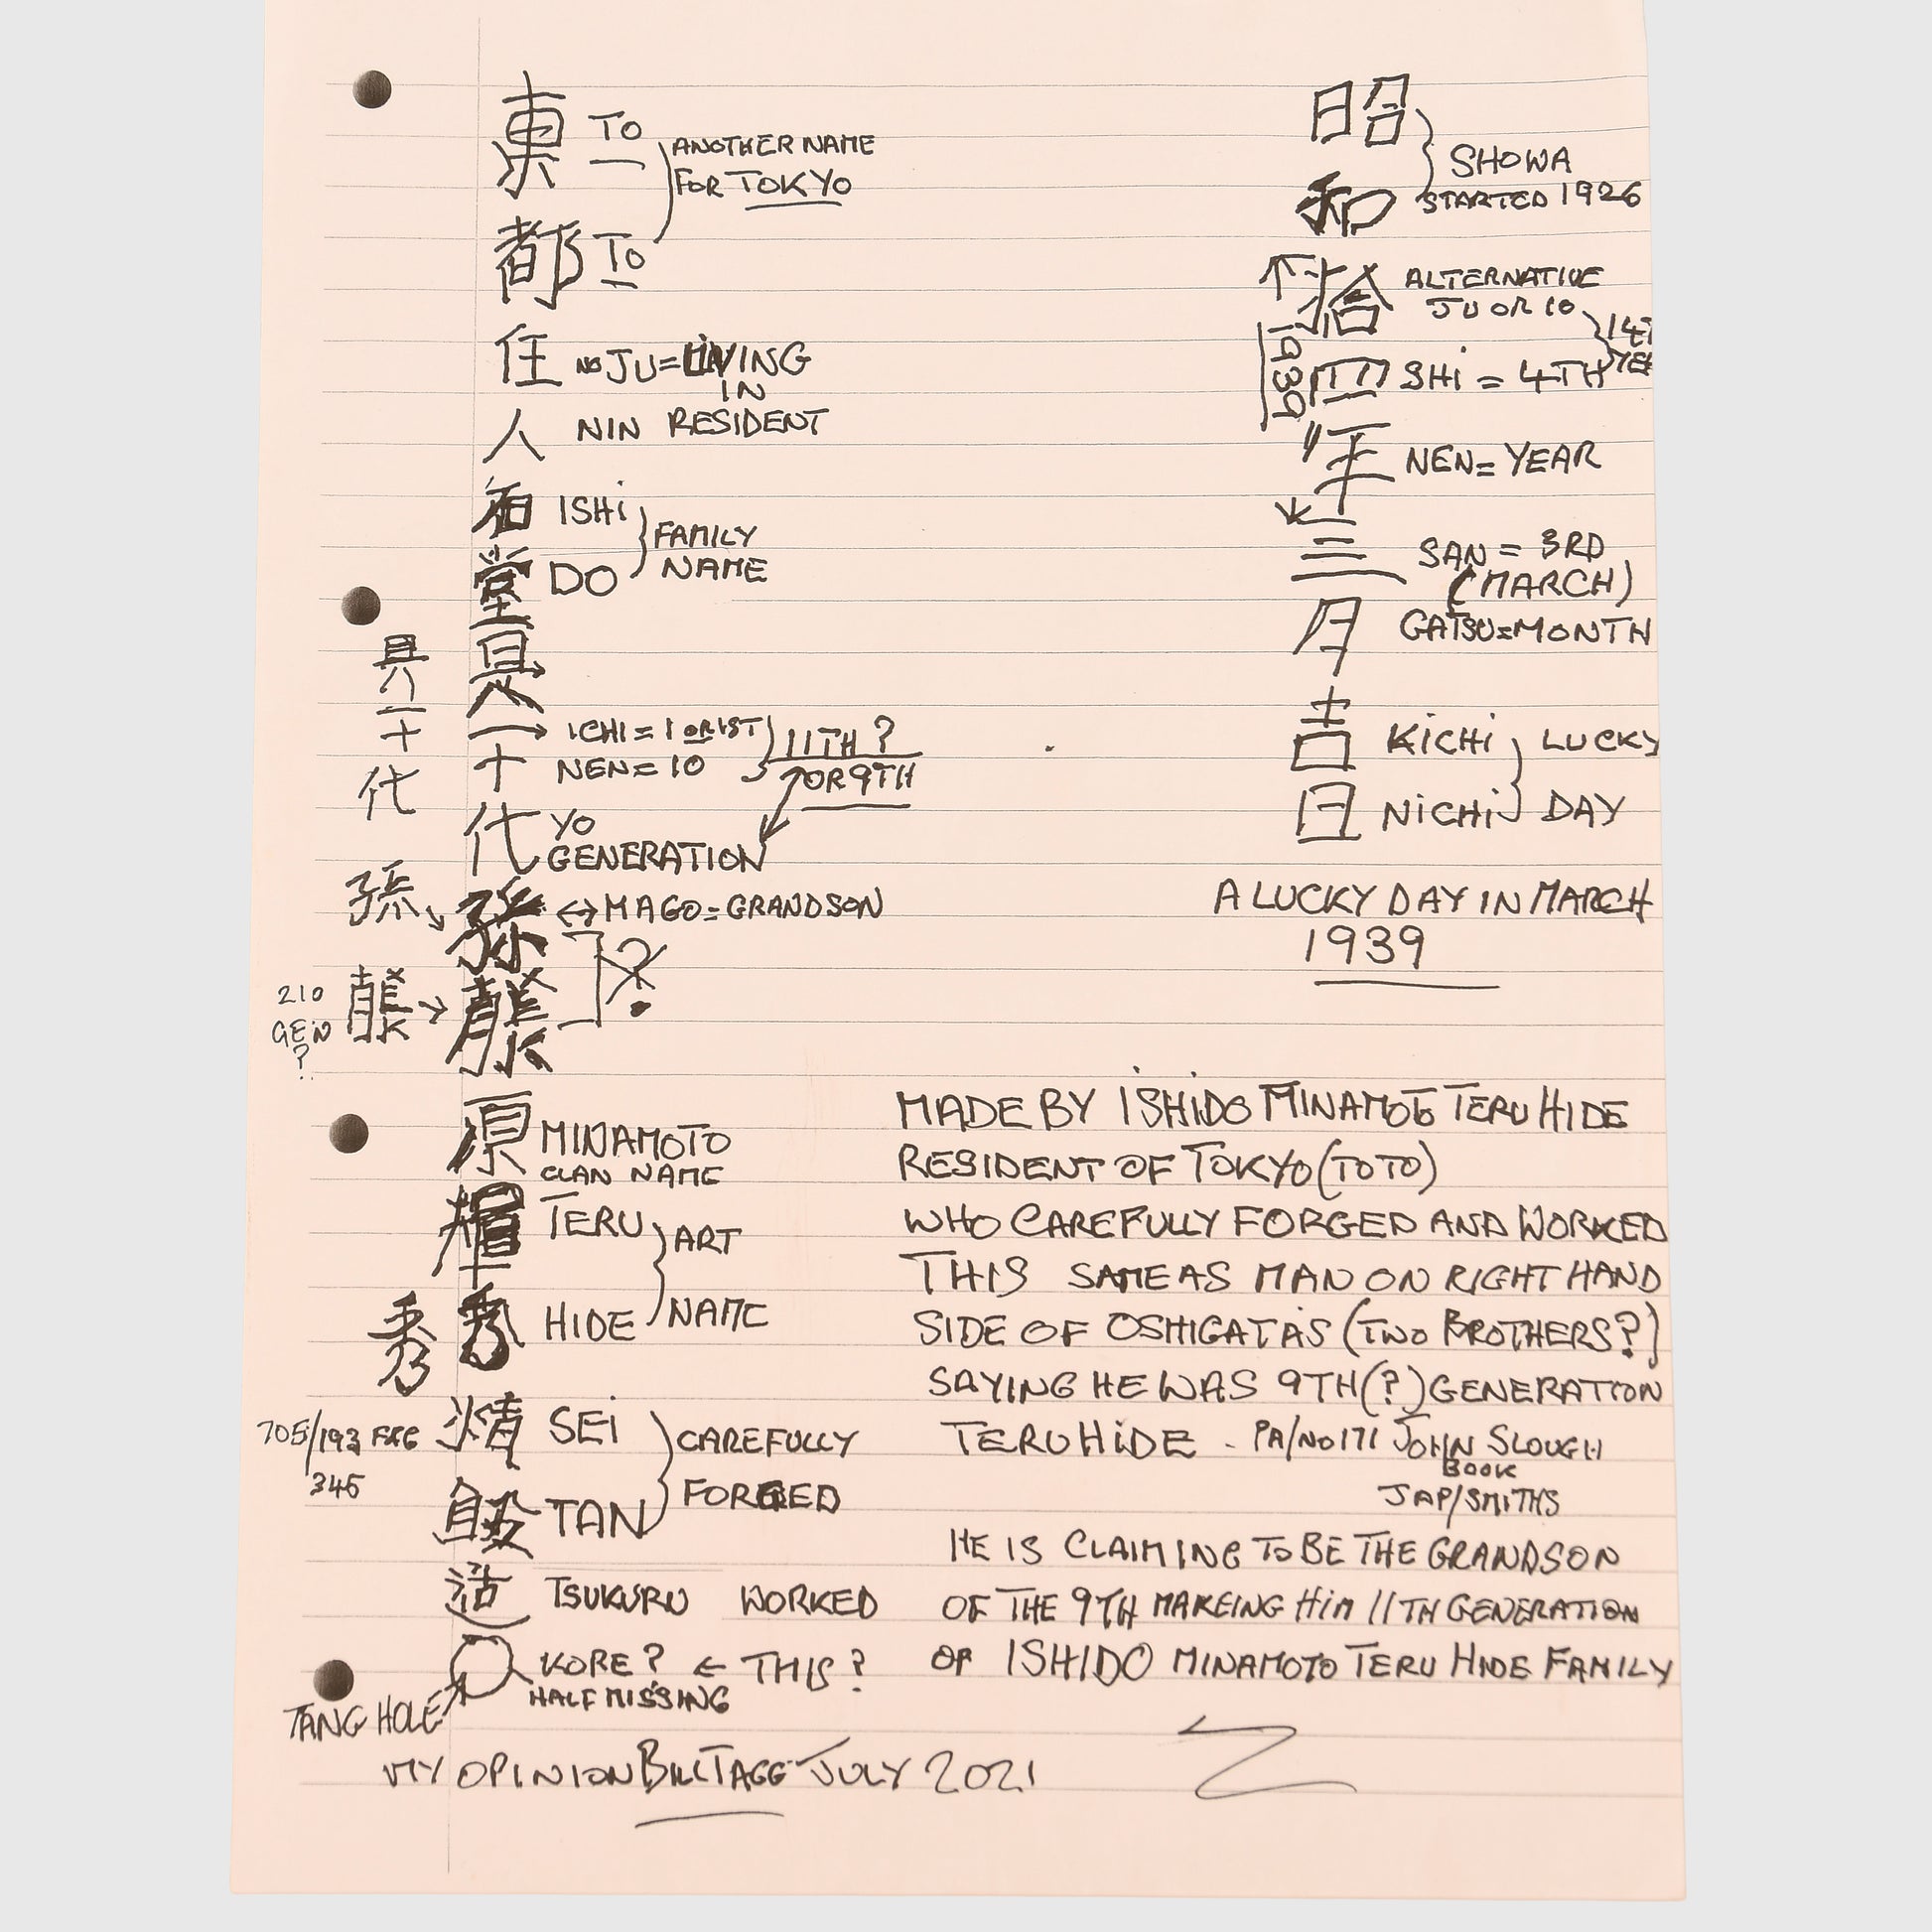 東 TO
ANOTHER NAME
FOR TOKYO
都 TO
住 NO JU = LIVING
IN
人 NIN RESIDENT
石 ISHI
堂 DO
FAMILY
NAME
具
一 ICHI = 1 OR 1ST
十 NEN = 10
11TH ?
OR 9TH
代 YO
GENERATION
具
一
十
代
孫 → 孫 ↔ MAGO = GRANDSON
?
210
GEN
?
源 MINAMOTO
CLAN NAME
輝 TERU
ART
秀 秀 HIDE
NAME
精 SEI
CAREFULLY
705/193 FEG
345
鍛 TAN
FORGED
造 TSUKURU WORKED
KORE ? ← THIS ?
HALF MISSING
TANG HOLE
MY OPINION BILL TAGG JULY 2021
昭
和
SHOWA
STARTED 1926
拾 ALTERNATIVE
JU OR 10
四 SHI = 4TH
1939
年 NEN = YEAR
三 SAN = 3RD
(MARCH)
月 GATSU = MONTH
吉 KICHI LUCKY
日 NICHI DAY
A LUCKY DAY IN MARCH
1939
MADE BY ISHIDO MINAMOTO TERU HIDE
RESIDENT OF TOKYO (TOTO)
WHO CAREFULLY FORGED AND WORKED
THIS SAME AS MAN ON RIGHT HAND
SIDE OF OSHIGATAS (TWO BROTHERS?)
SAYING HE WAS 9TH (?) GENERATION
TERU HIDE - PA/NO 171 JOHN SLOUGH
BOOK
JAP/SMITHS
HE IS CLAIMING TO BE THE GRANDSON
OF THE 9TH MAKEING HIM 11TH GENERATION
OF ISHIDO MINAMOTO TERU HIDE FAMILY